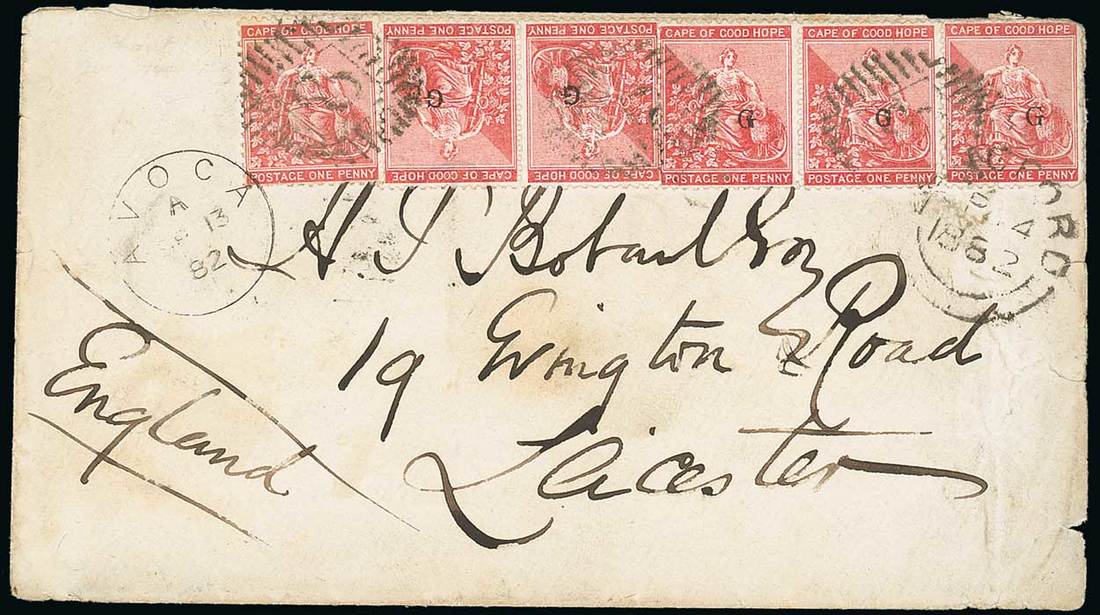 CAPE OF GOOD HOPE POSTAGE ONE PENNY CAPE OF GOOD HOPE CAPE OF GOOD HOPE CAPE OF GOOD HOPE
G G G G G
POSTAGE ONE PENNY CAPE OF GOOD HOPE CAPE OF GOOD HOPE POSTAGE ONE PENNY POSTAGE ONE PENNY POSTAGE ONE PENNY
AVOCA
A
13
82
4
1882
H S
19 Evington Road
Leicester
England